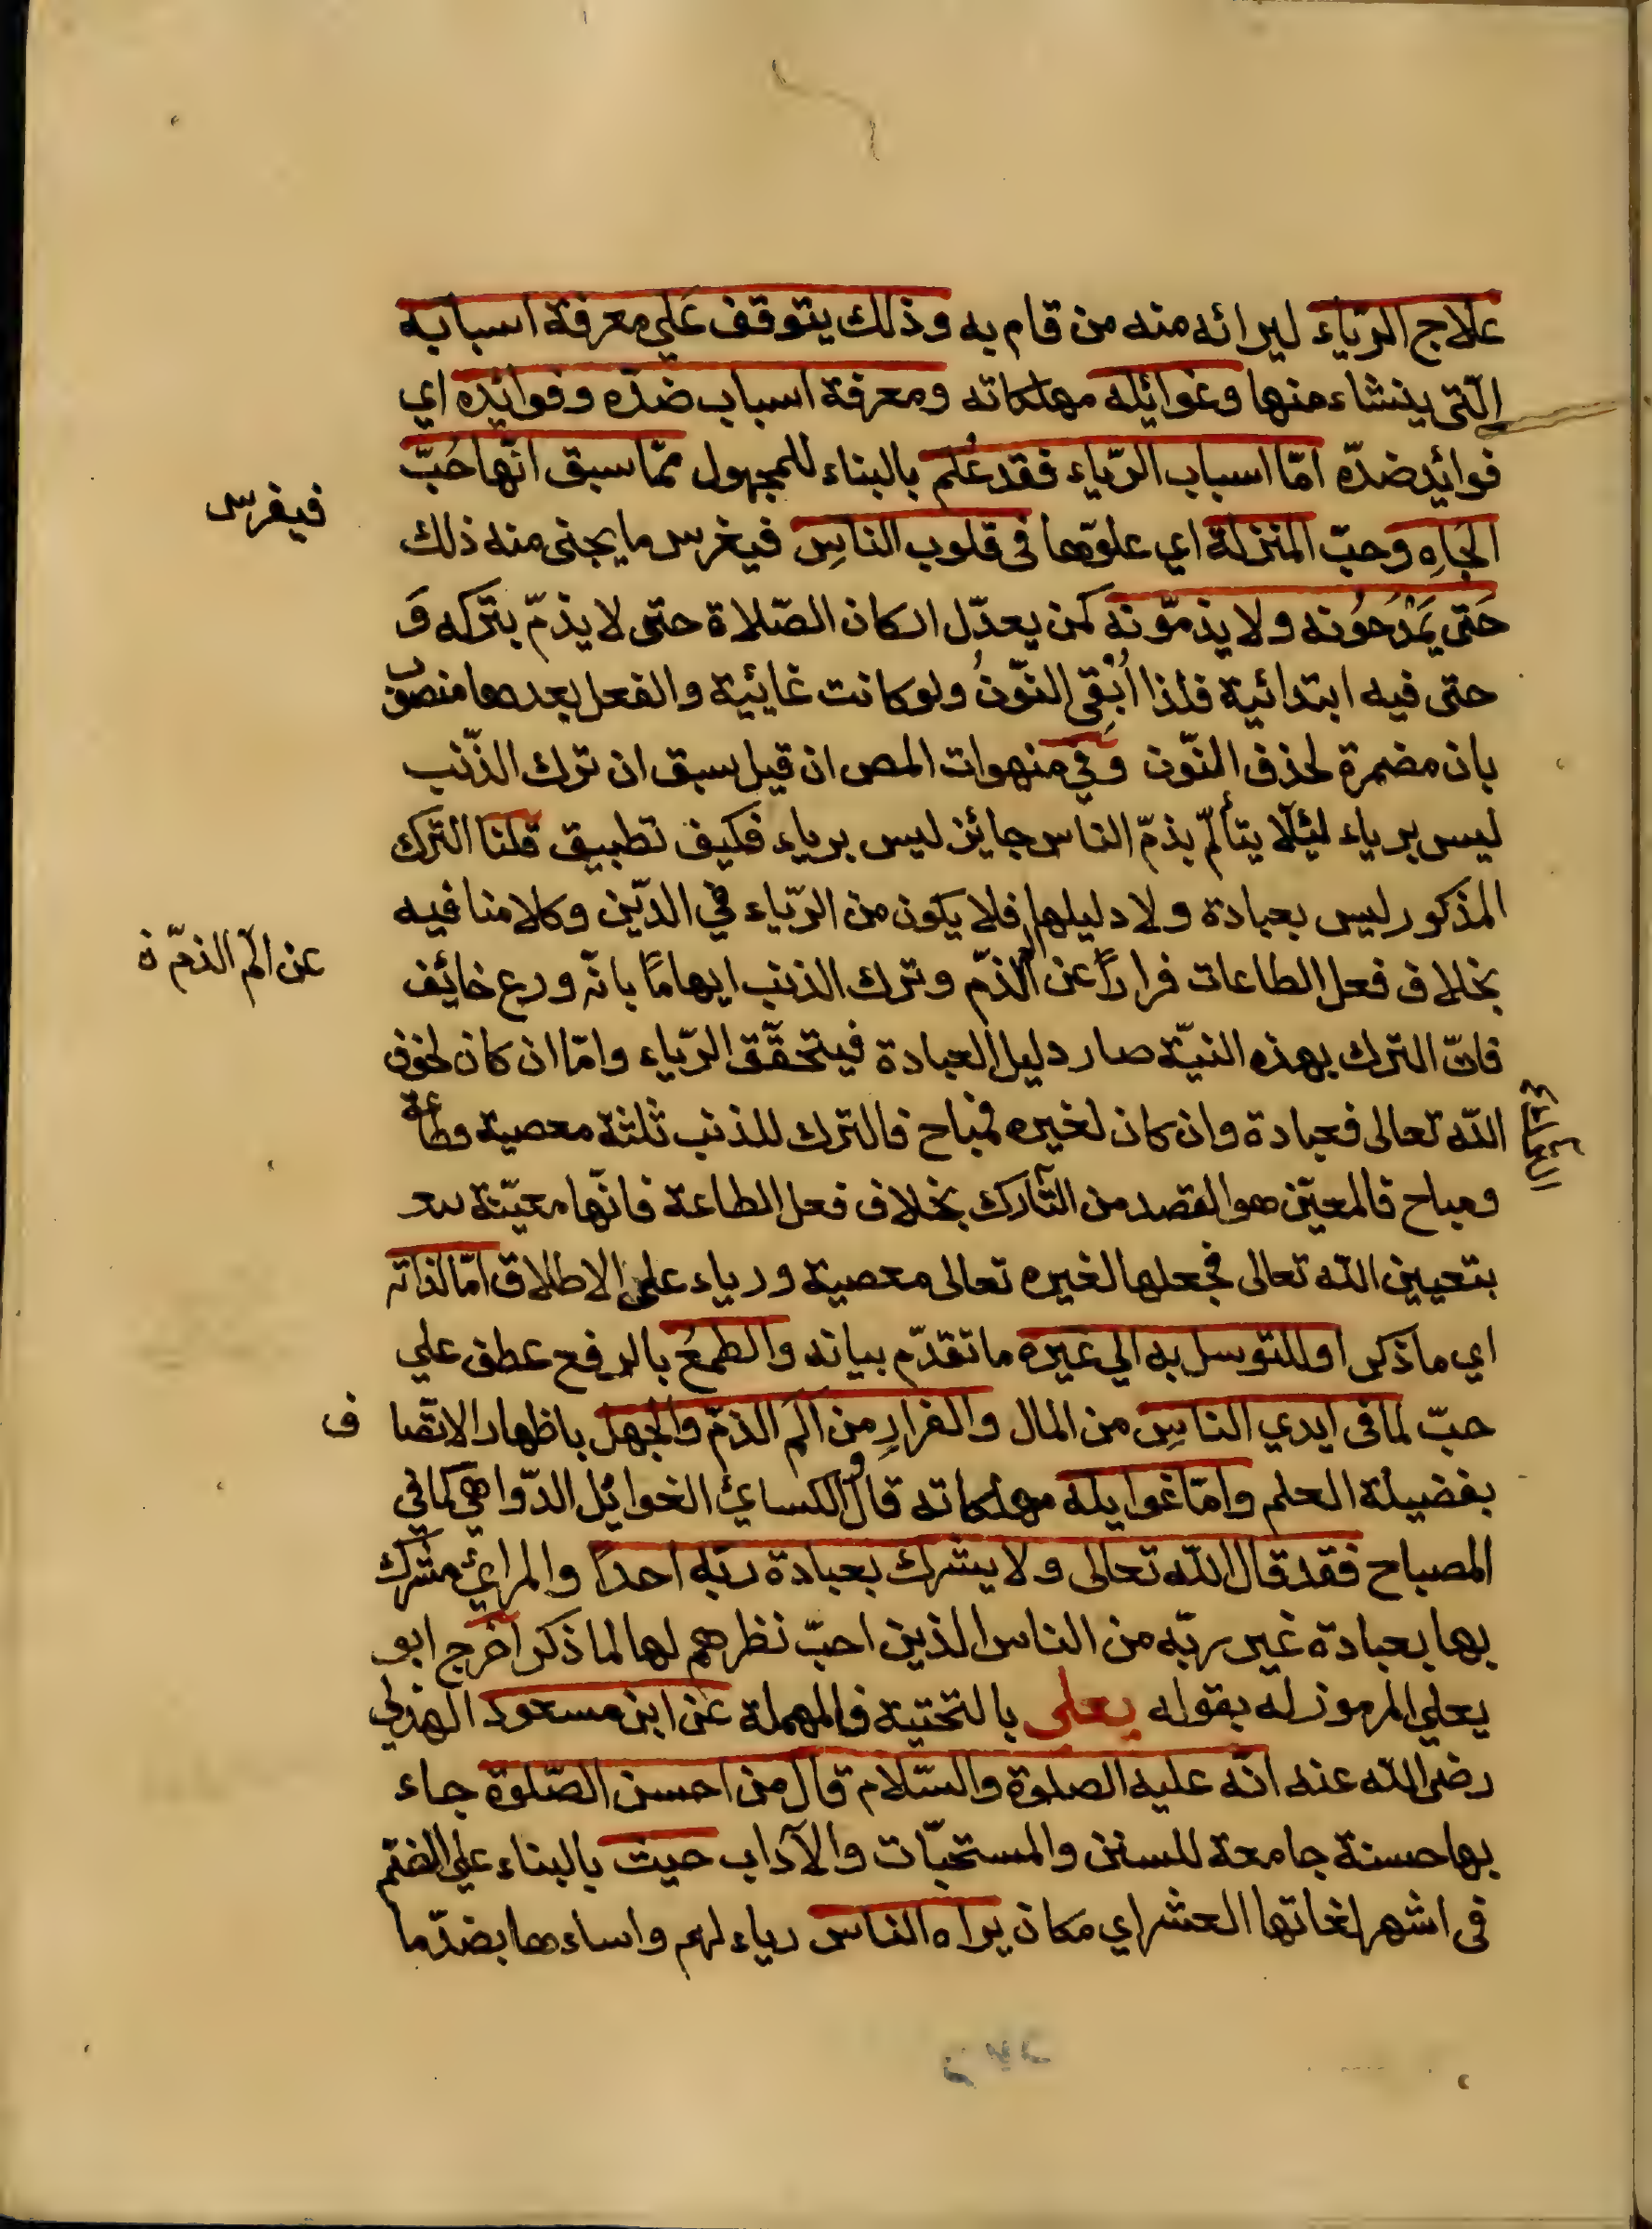 علاج الرّياء ليرائه منه من قام به وذلك يتوقف علي معرفة اسبابه
الّتي ينشاء منها وغوائله مهلكاته ومعرفة اسباب ضدّه وفوائده اي
فوائد ضدّه امّا اسباب الرّياء فقد عُلم بالبناء للمجهول ممّا سبق انّها حُبّ
الجاهِ وحبّ المنزلة اي علوّها في قلوب الناسِ فيغرس ما يجنى منه ذلك
فيغرس
حَتى يَمْدَحُونه ولا يذمّونه كمن يعدّل اركان الصّلاة حتى لا يذمّ بتركه وَ
حتى فيه ابتدائية فلذا اُبْقِي النّونُ ولو كانت غائية والفعل بعدها منصوب
بان مضمرة لحذف النّون وفي منهوات المص ان قيل سبق ان ترك الذّنب
ليس برياء لئلّا يتألّم بذمّ الناس جائز ليس برياء فكيف تطبيق قلنا الترك
المذكور ليس بعبادة ولا دليلها فلا يكون من الرّياء في الدّين وكلامنا فيه
بخلاف فعل الطاعات فراراً عن الذّم وترك الذنب ايهامًا بانّه ورع خائف
عن الم الذمّ
فانّ الترك بهذه النيّة صار دليل العبادة فيتحقّق الرّياء وامّا ان كان لخوف
الله تعالى فعبادة وان كان لغيره فمباح فالترك للذنب ثلثة معصية وطاعة
ومباح فالمعيّن هو القصد من التارك بخلاف فعل الطاعة فانّها معيّنة
بتعيين الله تعالى فجعلها لغيره تعالى معصية ورياء على الاطلاق امّا لذاته
اي ما ذكر او للتوسل به الي غيره ما تقدّم بيانه والطمعُ بالرفع عطف علي
حبّ لما في ايدي الناسِ من المال والفرارِ من الم الذمّ والجهل باظهار الاتّصاف
بفضيلة العلم وامّا غوايله مهلكاته قال الكسائي الغوائل الدّواهي كما في
المصباح فقد قال الله تعالى ولا يشرك بعبادة ربّه احداً والمرائي مشرك
بها بعبادة غير ربّه من الناس الذين احبّ نظرهم لها لما ذكر اخرج ابو
يعلي المرموز له بقوله يعلى بالتحتية فالمهملة عن ابن مسعود الهذلي
رضي الله عنه انّه عليه الصلوة والسّلام قال من احسن الصّلوة جاء
بها حسنة جامعة للسنن والمستحبّات والآداب حيث بالبناء علي الضم
في اشهر لغاتها العشر اي مكان يراه الناس رياء لهم واساءها بضدّ ما